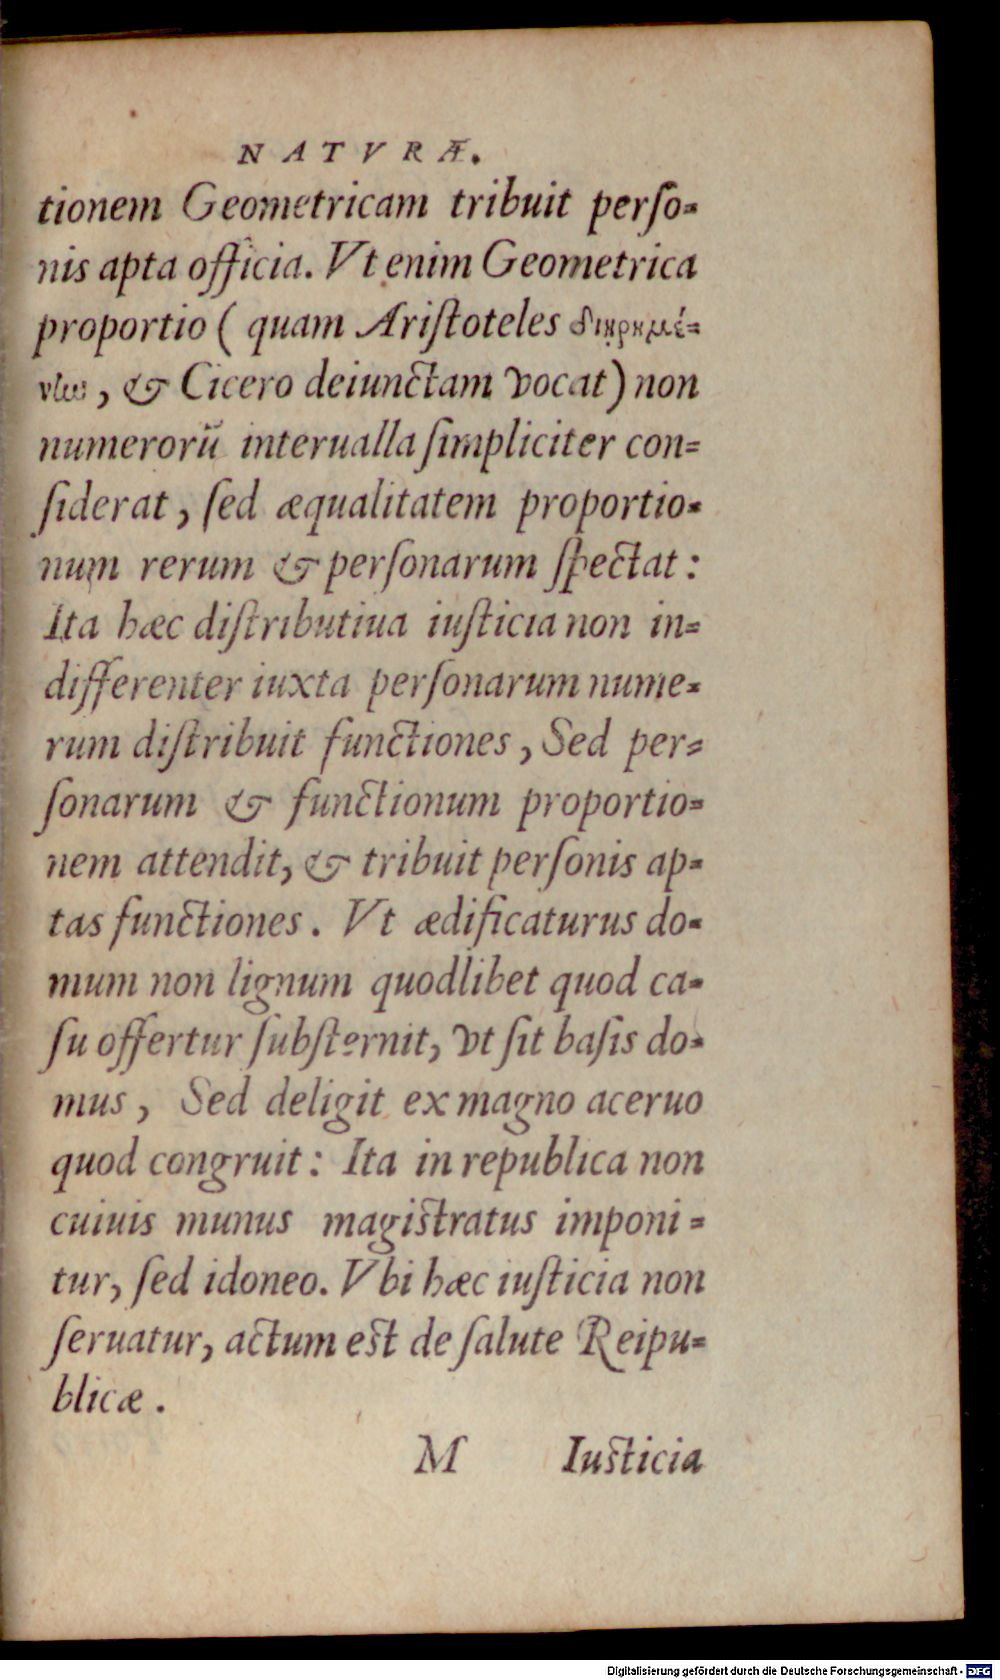 NATVRÆ.
tionem Geometricam tribuit perſo-
nis apta officia. Vt enim Geometrica
proportio ( quam Ariſtoteles διῃρημέ-
νίω, & Cicero deiunctam vocat) non
numerorū interualla ſimpliciter con-
ſiderat, ſed æqualitatem proportio-
num rerum & perſonarum ſpectat:
Ita hæc diſtributiua iuſticia non in-
differenter iuxta perſonarum nume-
rum diſtribuit functiones, Sed per-
ſonarum & functionum proportio-
nem attendit, & tribuit perſonis ap-
tas functiones. Vt ædificaturus do-
mum non lignum quodlibet quod ca-
ſu offertur ſubſternit, vt ſit baſis do-
mus, Sed deligit ex magno aceruo
quod congruit: Ita in republica non
cuiuis munus magistratus imponi-
tur, ſed idoneo. Vbi hæc iuſticia non
ſeruatur, actum est de ſalute Reipu-
blicæ.
M Iusticia
Digitalisierung gefördert durch die Deutsche Forschungsgemeinschaft - DFG